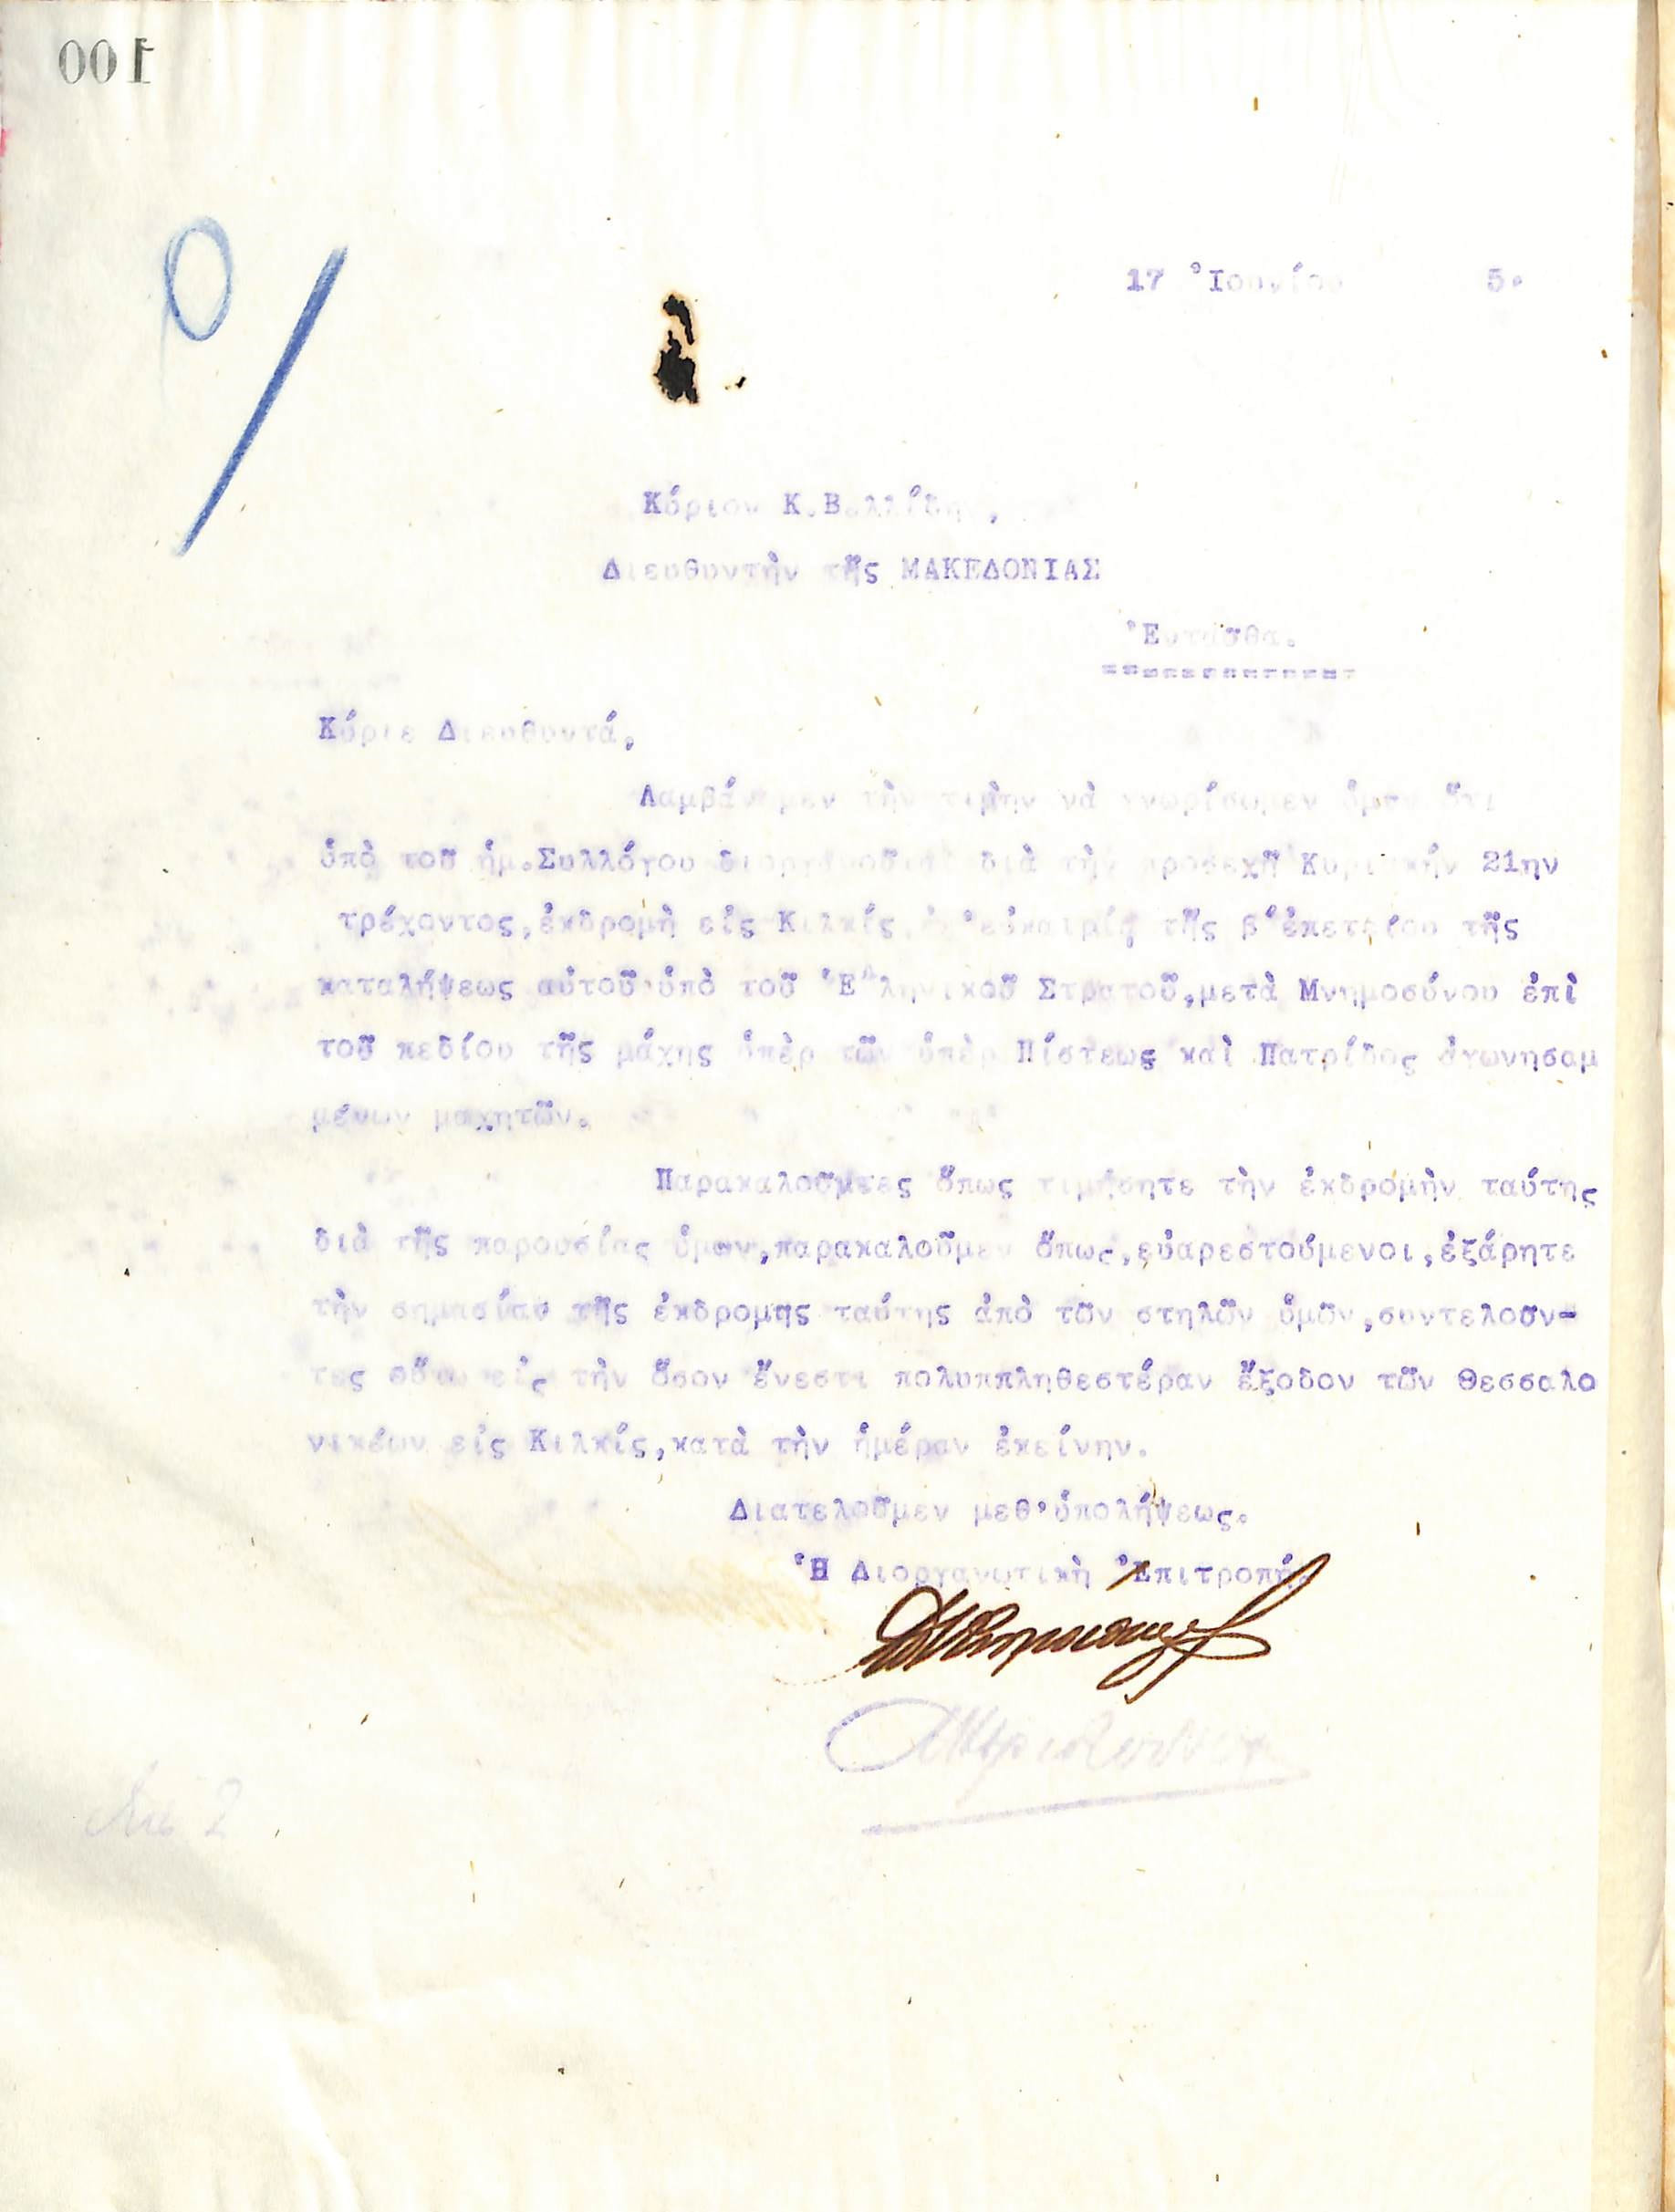 001
17 Ἰουνίου 5.
Κύριον Κ.Βελλίδην,
Διευθυντὴν τῆς ΜΑΚΕΔΟΝΙΑΣ
Ἐνταῦθα.
Κύριε Διευθυντά,
Λαμβάνομεν τὴν τιμὴν νὰ γνωρίσωμεν ὑμῖν ὅτι
ὑπὸ τοῦ ἡμ.Συλλόγου διοργανοῦται διὰ τὴν προσεχῆ Κυριακήν 21ην
τρέχοντος,ἐκδρομὴ εἰς Κιλκίς,ἐπ'εὐκαιρίᾳ τῆς β'ἐπετείου τῆς
καταλήψεως αὐτοῦ ὑπὸ τοῦ Ἑλληνικοῦ Στρατοῦ,μετὰ Μνημοσύνου ἐπὶ
τοῦ πεδίου τῆς μάχης ὑπὲρ τῶν ὑπὲρ Πίστεως καὶ Πατρίδος ἀγωνησαμ
μένων μαχητῶν.
Παρακαλοῦντες ὅπως τιμήσητε τὴν ἐκδρομὴν ταύτης
διὰ τῆς παρουσίας ὑμῶν,παρακαλοῦμεν ὅπως,εὐαρεστούμενοι,ἐξάρητε
τὴν σημασίαν τῆς ἐκδρομῆς ταύτης ἀπὸ τῶν στηλῶν ὑμῶν,συντελοῦν-
τες οὕτω εἰς τὴν ὅσον ἔνεστι πολυππληθεστέραν ἔξοδον τῶν Θεσσαλο
νικέων εἰς Κιλκίς,κατὰ τὴν ἡμέραν ἐκείνην.
Διατελοῦμεν μεθ'ὑπολήψεως.
Ἡ Διοργανωτικὴ Ἐπιτροπή.